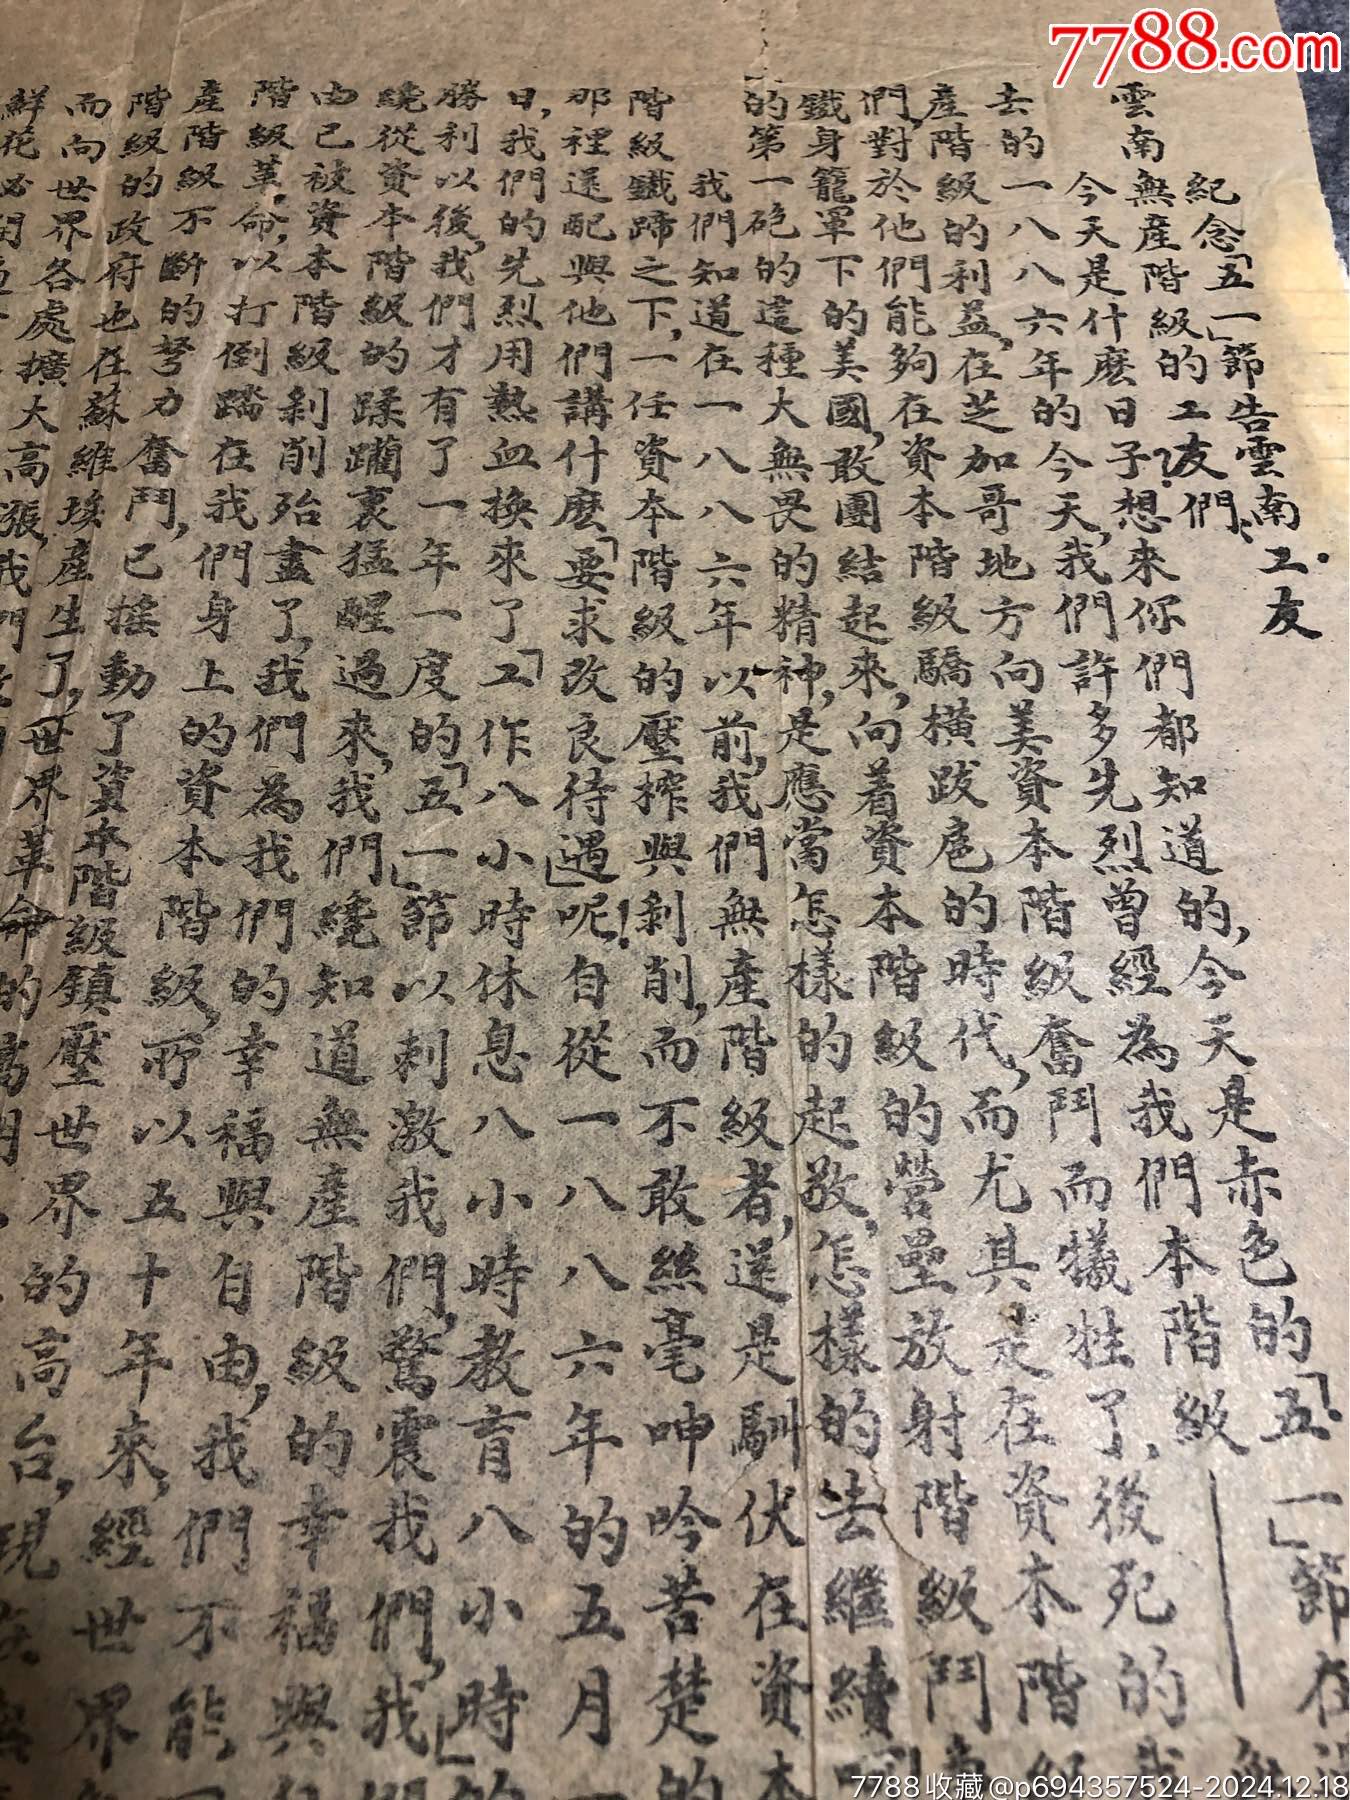 7788.com
紀念「五一」節告雲南工友
雲南無產階級的工友們、
今天是什麽日子?想來你們都知道的,今天是赤色的「五一」節在
去的一八八六年的今天,我們許多先烈曾經為我們本階級——無
產階級的利益,在芝加哥地方向美資本階級奮鬥而犧牲了,後死的我
們,對於他們能夠在資本階級驕橫跋扈的時代,而尤其是在資本階級
鐵身籠罩下的美國,敢團結起來,向着資本階級的營壘放射階級鬥
的第一砲的這種大無畏的精神,是應當怎樣的起敬,怎樣的去繼續
我們知道在一八八六年以前,我們無產階級者,遂是馴伏在資本
階級鐵蹄之下,一任資本階級的壓搾與剝削,而不敢絲毫呻吟苦楚的
那裡還配與他們講什麽「要求改良待遇」呢!自從一八八六年的五月一
日,我們的先烈用熱血換來了「工作八小時休息八小時教育八小時」的
勝利以後,我們才有了一年一度的「五一」節以刺激我們,驚震我們,我們
纔從資本階級的蹂躪裏猛醒過來,我們纔知道無產階級的幸福與自
由已被資本階級剝削殆盡了,我們為我們的幸福與自由,我們不能
階級革命,以打倒踏在我們身上的資本階級,所以五十年來,經世界
產階級不斷的努力奮鬥,已搖動了資本階級鎮壓世界的高台,現
階級的政府也在蘇維埃產生了,世界革命的
而向世界各處擴大高漲,我們
鮮花必開
7788收藏@p694357524-2024.12.18